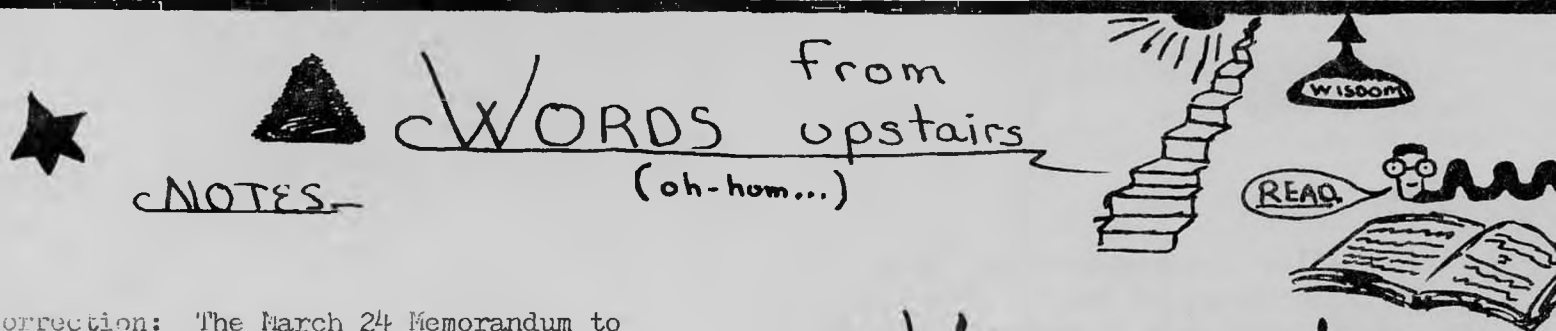 from
WORDS upstairs
(oh-hum...)
NOTES
WISDOM
READ
orrection: The March 24 Memorandum to